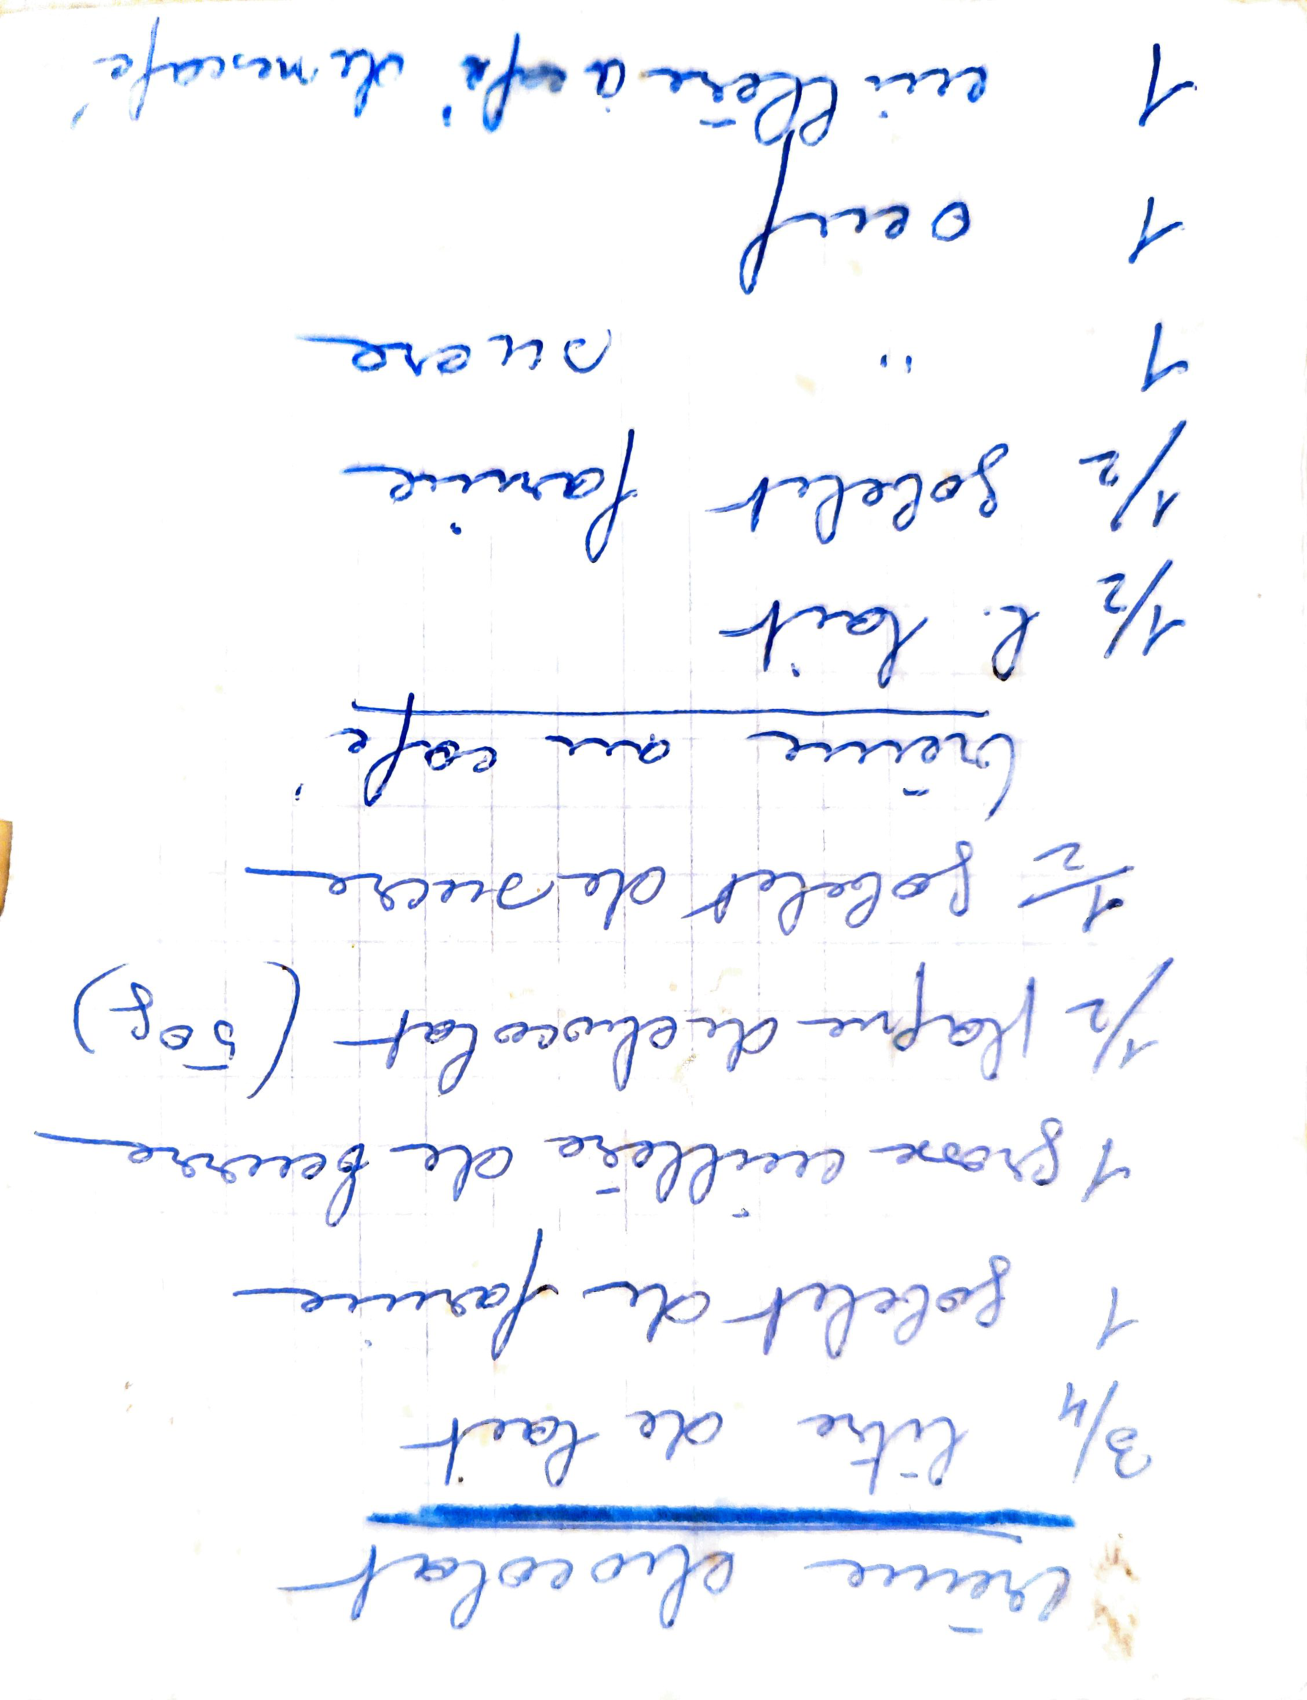 Crème chocolat
3/4 litre de lait
1 gobelet de farine
1 grosse cuillère de beurre
1/2 plaque de chocolat (50g)
1/2 gobelet de sucre
Crème au café
1/2 l. lait
1/2 gobelet farine
1 " sucre
1 oeuf
1 cuillère à café de nescafé